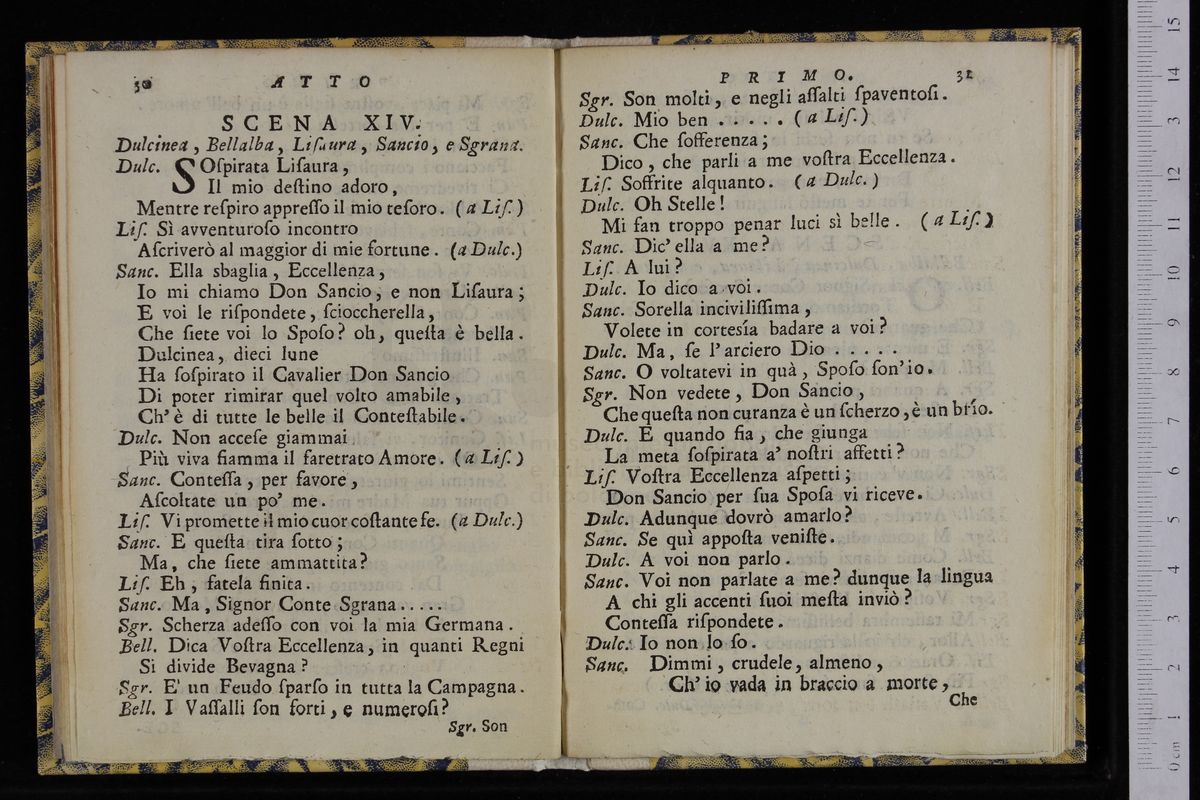 30 ATTO
SCENA XIV.
Dulcinea, Bellalba, Liſaura, Sancio, e Sgrana.
Dulc. SOſpirata Liſaura,
Il mio deſtino adoro,
Mentre reſpiro appreſſo il mio teſoro. (a Liſ.)
Liſ. Sì avventuroſo incontro
Aſcriverò al maggior di mie fortune. (a Dulc.)
Sanc. Ella sbaglia, Eccellenza,
Io mi chiamo Don Sancio, e non Liſaura;
E voi le riſpondete, ſcioccherella,
Che ſiete voi lo Spoſo? oh, queſta è bella.
Dulcinea, dieci lune
Ha ſoſpirato il Cavalier Don Sancio
Di poter rimirar quel volto amabile,
Ch' è di tutte le belle il Conteſtabile.
Dulc. Non acceſe giammai
Più viva fiamma il faretrato Amore. (a Liſ.)
Sanc. Conteſſa, per favore,
Aſcoltate un po' me.
Liſ. Vi promette il mio cuor coſtante fe. (a Dulc.)
Sanc. E queſta tira ſotto;
Ma, che ſiete ammattita?
Liſ. Eh, fatela finita.
Sanc. Ma, Signor Conte Sgrana.....
Sgr. Scherza adeſſo con voi la mia Germana.
Bell. Dica Voſtra Eccellenza, in quanti Regni
Si divide Bevagna?
Sgr. E' un Feudo ſparſo in tutta la Campagna.
Bell. I Vaſſalli ſon forti, e numeroſi?
Sgr. Son
PRIMO. 31
Sgr. Son molti, e negli aſſalti ſpaventoſi.
Dulc. Mio ben ..... (a Liſ.)
Sanc. Che ſofferenza;
Dico, che parli a me voſtra Eccellenza.
Liſ. Soffrite alquanto. (a Dulc.)
Dulc. Oh Stelle!
Mi fan troppo penar luci sì belle. (a Liſ.)
Sanc. Dic' ella a me?
Liſ. A lui?
Dulc. Io dico a voi.
Sanc. Sorella inciviliſſima,
Volete in cortesía badare a voi?
Dulc. Ma, ſe l' arciero Dio .....
Sanc. O voltatevi in quà, Spoſo ſon' io.
Sgr. Non vedete, Don Sancio,
Che queſta non curanza è un ſcherzo, è un brío.
Dulc. E quando fia, che giunga
La meta ſoſpirata a' noſtri affetti?
Liſ. Voſtra Eccellenza aſpetti;
Don Sancio per ſua Spoſa vi riceve.
Dulc. Adunque dovrò amarlo?
Sanc. Se quì appoſta veniſte.
Dulc. A voi non parlo.
Sanc. Voi non parlate a me? dunque la lingua
A chi gli accenti ſuoi meſta inviò?
Conteſſa riſpondete.
Dulc. Io non lo ſo.
Sanc. Dimmi, crudele, almeno,
Ch' io vada in braccio a morte,
Che
0 cm 1 2 3 4 5 6 7 8 9 10 11 12 13 14 15